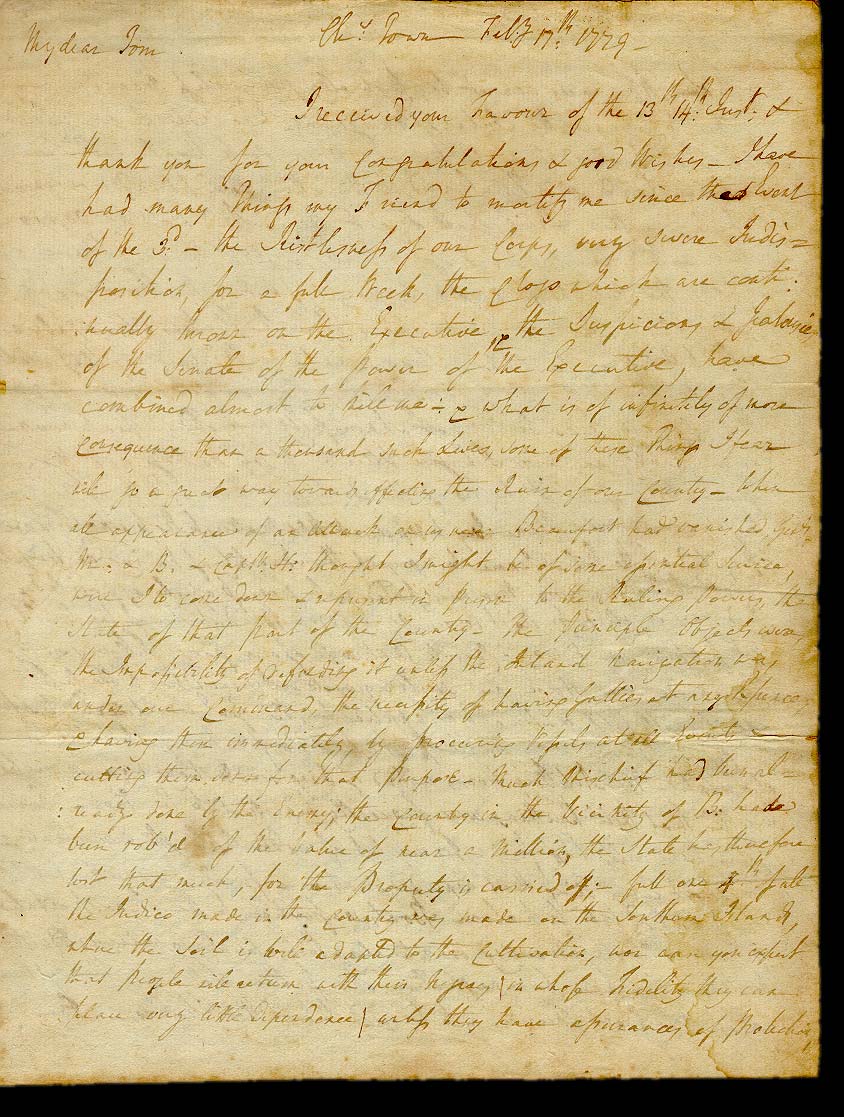 Chs. Town Feby 17th. 1779 -
My dear Tom
I received your Favour of the 13th 14th. Inst. &
thank you for your Congratulations & good Wishes - I have
had many Things my Friend to mortify me since the Event
of the 3d. - the Restlesness of our Corps, very severe Indis=
position, for a full Week, the Clogs which are conti:
:nually thrown on the Executive, the Suspicions & Jealousies
of the Senate of the Power of the Executive, have
combined almost to kill me - & what is of infinitely of more
consequence than a thousand such Lives, some of these Things I fear
will go a great way towards effecting the Ruin of our Country - When
all appearance of an Attack on us near Beaufort had vanished, Genls.
M. & B. & Captn. H. thought I might be of some essential Service,
were I to come down & represent in Person to the Ruling Powers, the
State of that Part of the Country - the Principle Objects were,
the Impossibility of defending it unless the Inland Navigation was
under our Command, the necessity of having Gallies at any Expence,
& having them immediately, by procuring Vessels at all Events &
cutting them down for that Purpose - Much Mischief had been al=
:ready done by the Enemy, the Country in the Vicinity of B. had
been rob'd of the Value of near a Million, the State has therefore
lost that much, for the Property is carried off; - full one 4th. of all
the Indico made in the Country was made on the Southern Islands,
where the Soil is well adapted to the Cultivation, nor can you expect
that People will return with their Negroes (in whose Fidelity they can
place very little Dependence) unless they have assurances of Protection,